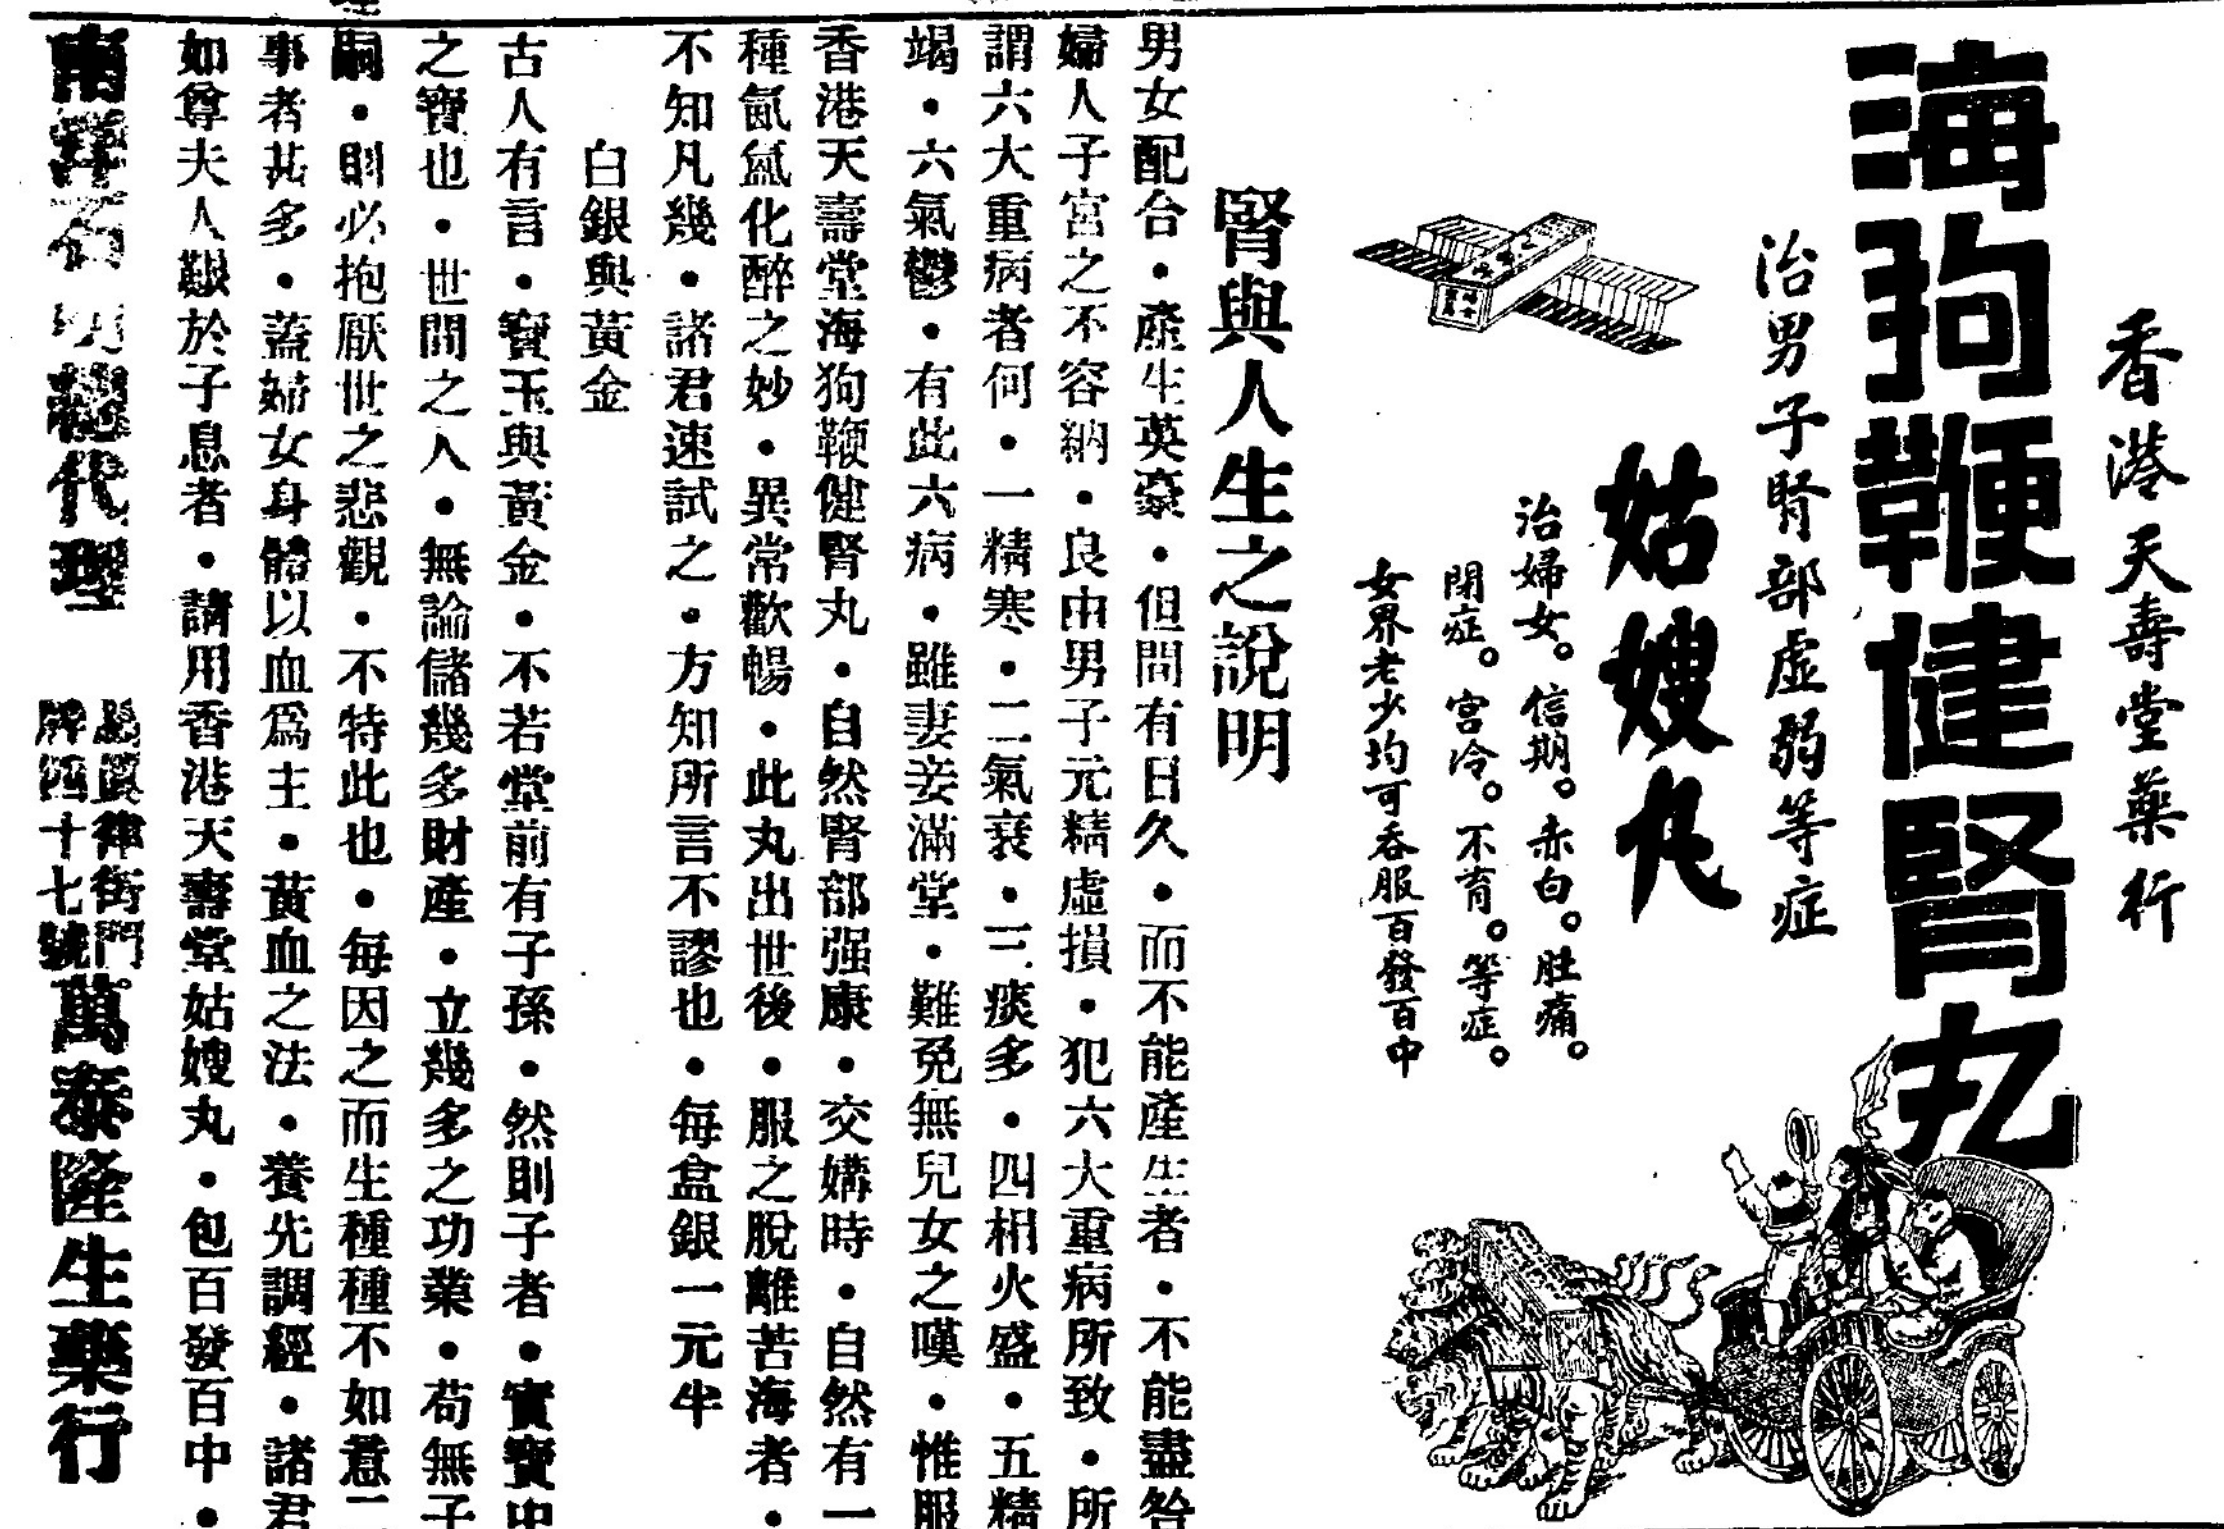 香港天壽堂藥行
海狗鞭健腎丸
治男子腎部虛弱等症
姑嫂丸
治婦女。信期。赤白。肚痛。
閉症。宮冷。不育。等症。
女界老少均可吞服百發百中
腎與人生之說明
男女配合・產生英豪・但間有日久・而不能產生者・不能盡咎
婦人子宮之不容納・良由男子元精虛損・犯六大重病所致・所
謂六大重病者何・一精寒・二氣衰・三痰多・四相火盛・五精
竭・六氣鬱・有此六病・雖妻妾滿堂・難免無兒女之嘆・惟服
香港天壽堂海狗鞭健腎丸・自然腎部强康・交媾時・自然有一
種氤氳化醉之妙・異常歡暢・此丸出世後・服之脫離苦海者・
不知凡幾・諸君速試之・方知所言不謬也・每盒銀一元半
白銀與黃金
古人有言・寶玉與黃金・不若堂前有子孫・然則子者・實寶中
之寶也・世間之人・無論儲幾多財產・立幾多之功業・苟無子
嗣・則必抱厭世之悲觀・不特此也・每因之而生種種不如意二
事者甚多・蓋婦女身體以血爲主・黃血之法・養先調經・諸君
如尊夫人艱於子息者・請用香港天壽堂姑嫂丸・包百發百中・
總代理
衙門
牌四十七號
萬泰隆生藥行